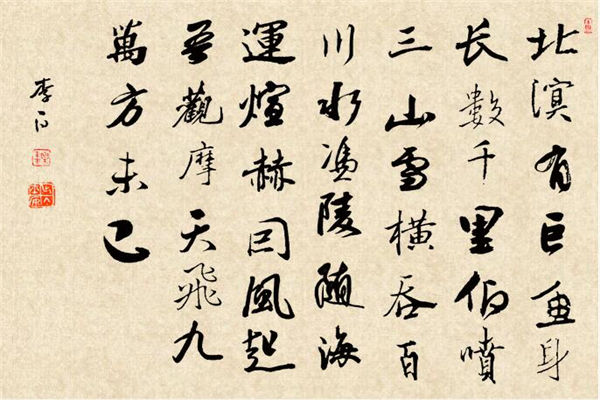 北溟有巨魚身
长數千里仰噴
三山雪橫吞百
川水憑陵随海
運煊赫因風起
吾觀摩天飛九
萬方未已
李白